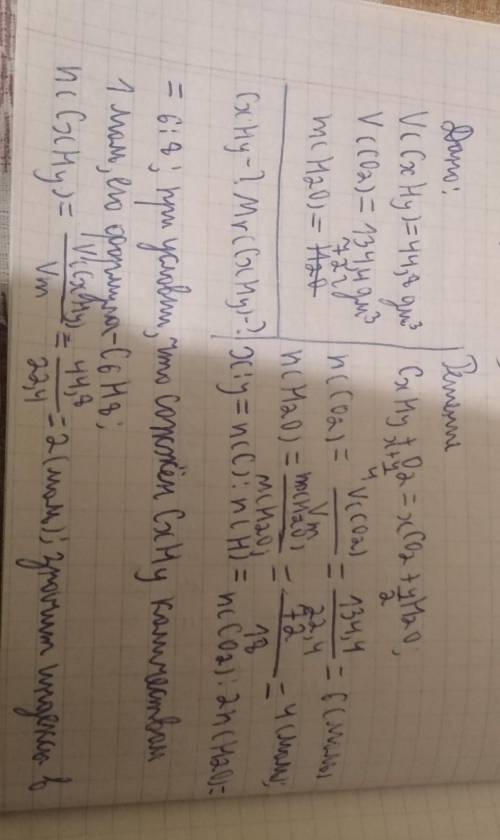 Дано:
V(CxHy)=44,8 дм³
V(CO2)=134,4 дм³
m(H2O)=72г
CxHy-? Mr(CxHy)-?
Решение
CxHy+(x+y/4)O2=xCO2+y/2H2O;
n(CO2)=V(CO2)/Vm=134,4/22,4=6(моль)
n(H2O)=m(H2O)/M(H2O)=72/18=4(моль);
x:y=n(C):n(H)=n(CO2):2n(H2O)=
=6:8; при условии, что сожжён CxHy количеством
1 моль, его формула-C6H8;
n(CxHy)=V(CxHy)/Vm=44,8/22,4=2(моль); значит индексы в